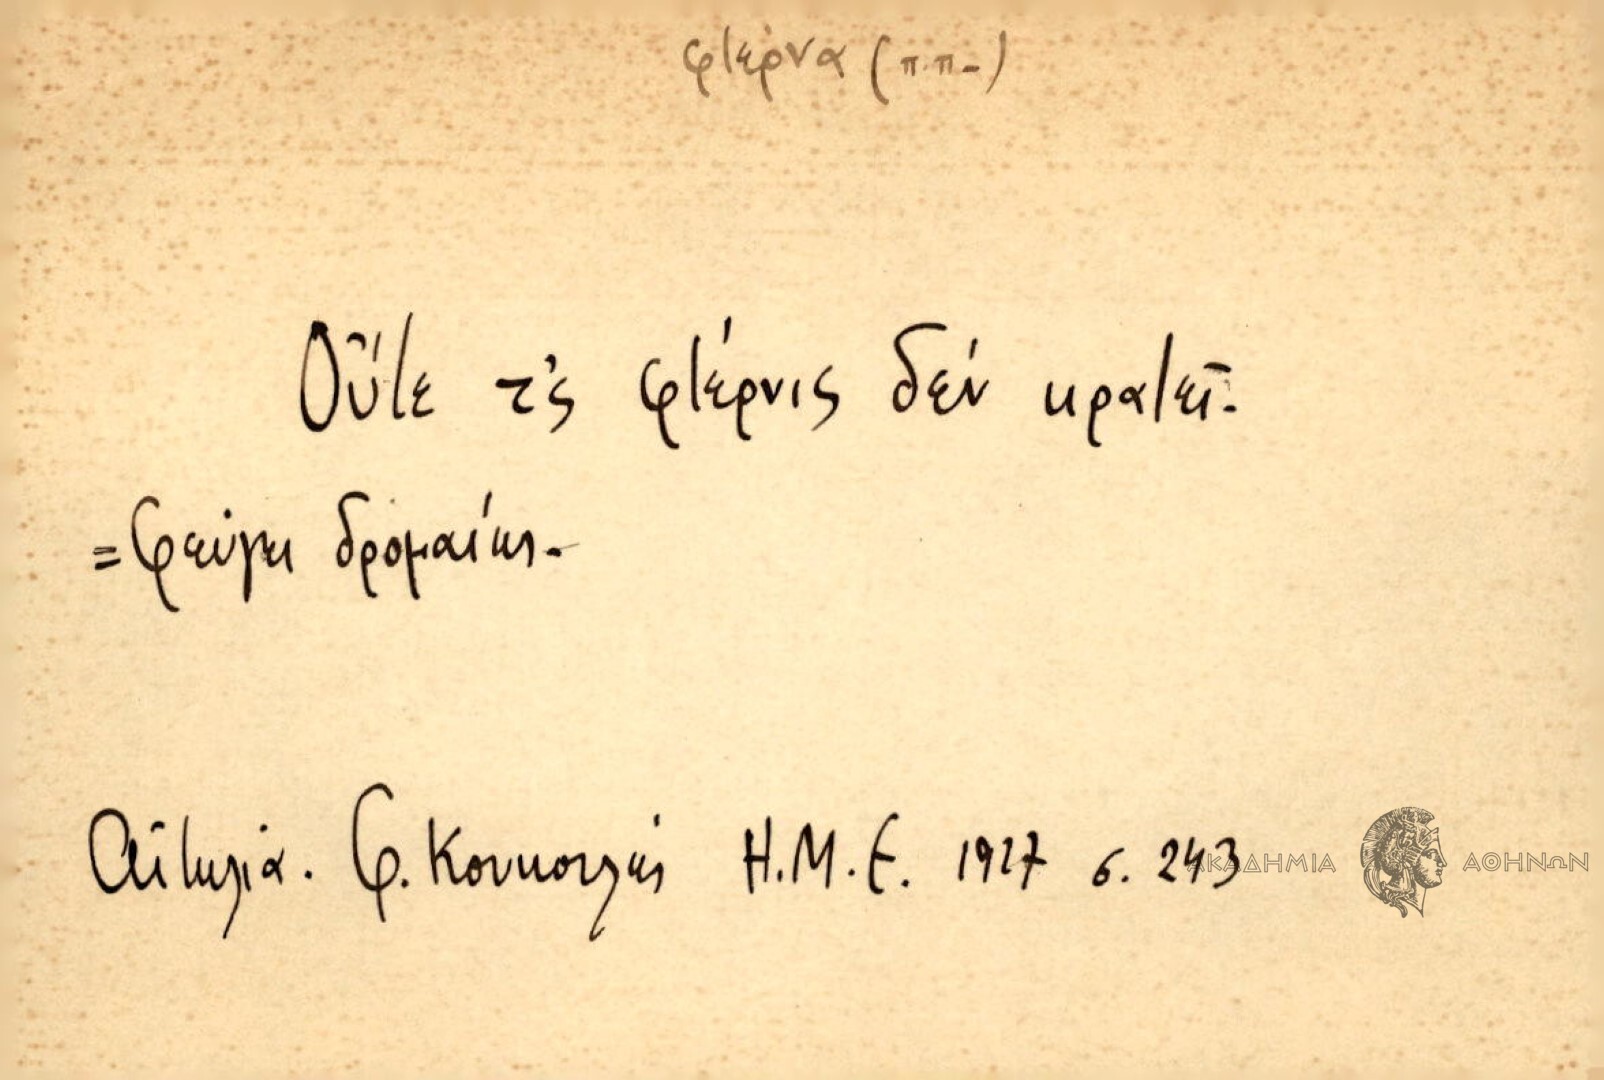 φτέρνα (π.π-)
Οὔτε τ'ς φτέρνις δέν κρατεῖ.
=Φεύγει δρομαίως.
Αἰτωλία. Φ. Κουκουλές Η.Μ.Ε. 1927 σ. 243
ΑΚΑΔΗΜΙΑ ΑΘΗΝΩΝ